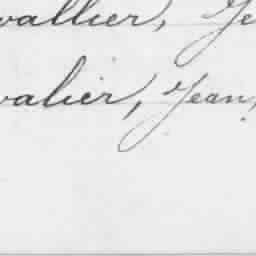 vallier, Je
valier, Jean,